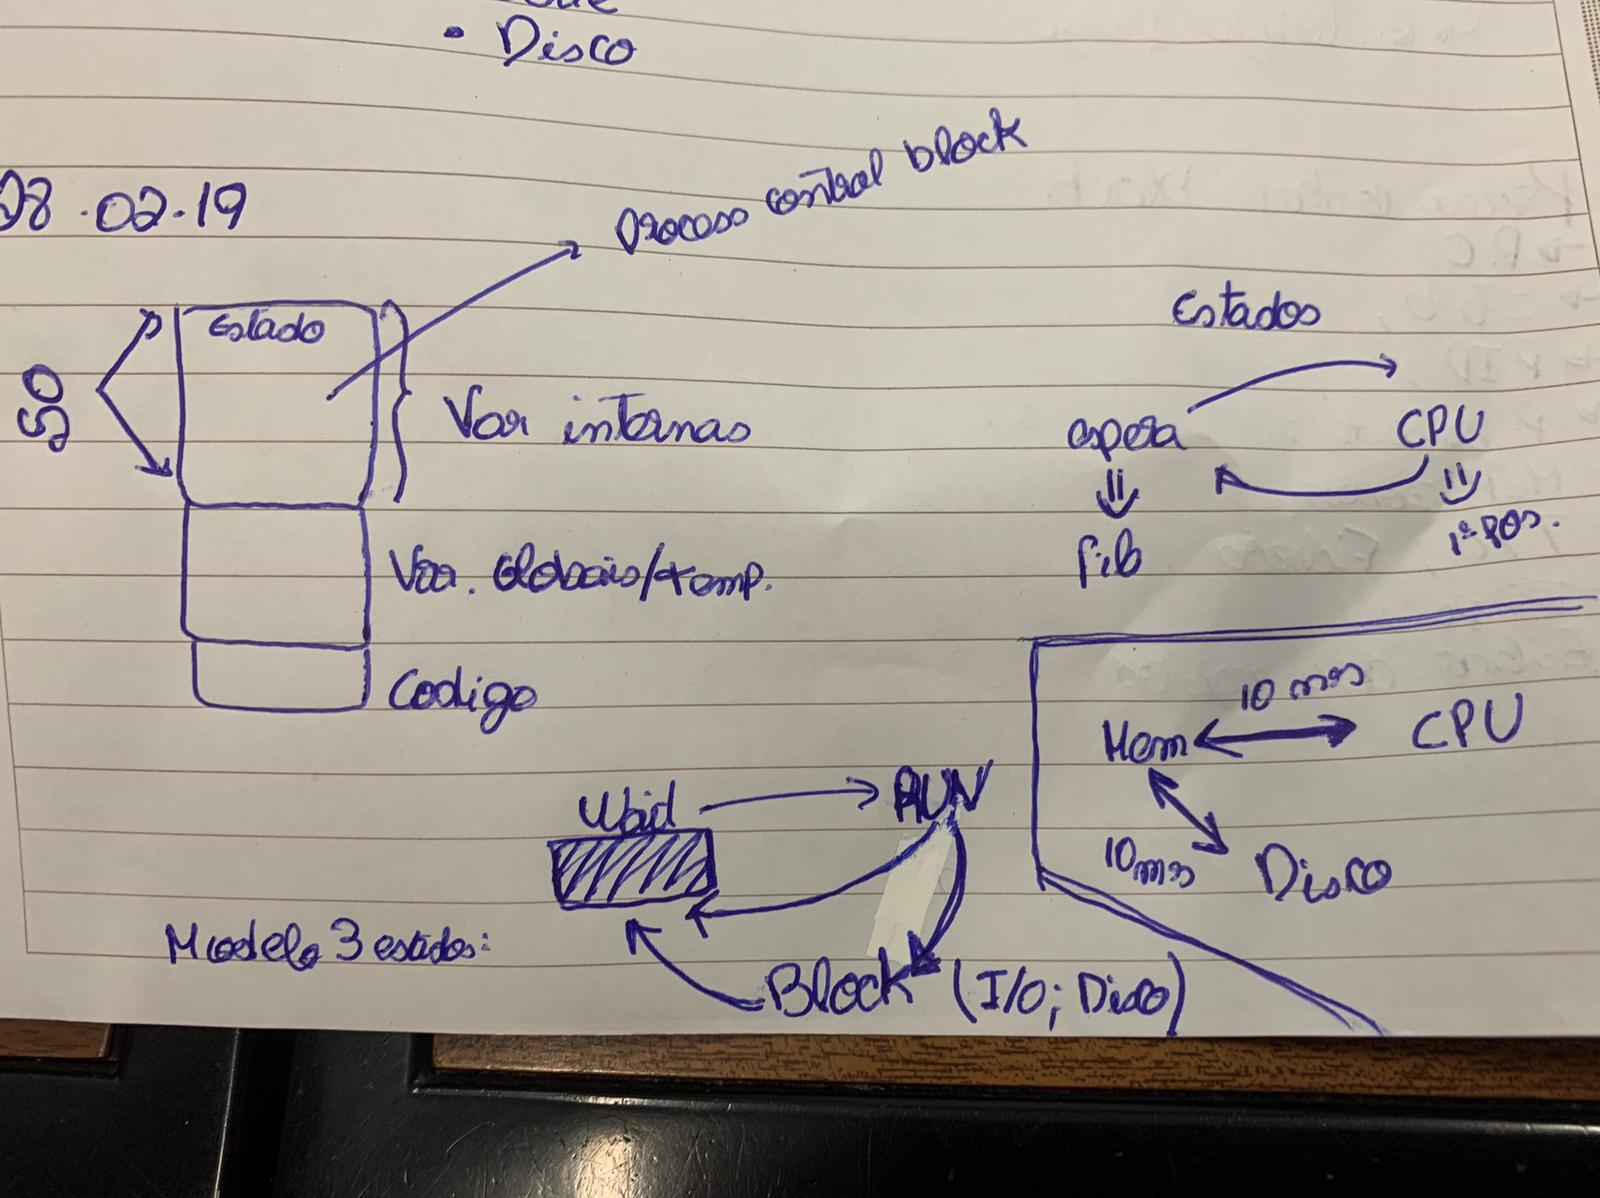 • Disco
08.02.19
Processo control block
SO
Estado
Var internas
Var. Globais/temp.
Codigo
Estados
espera
CPU
fila
1ª pos.
Mem
10 ms
CPU
10ms
Disco
Modelo 3 estados:
Wait
RUN
Block (I/O; Disco)